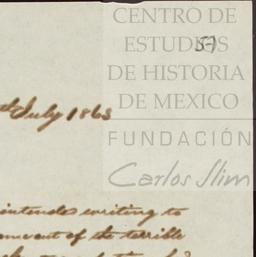 CENTRO DE
ESTUDIOS
57
DE HISTORIA
DE MEXICO
FUNDACIÓN
July 1863
Carlos Slim
intends writing to
out of the terrible